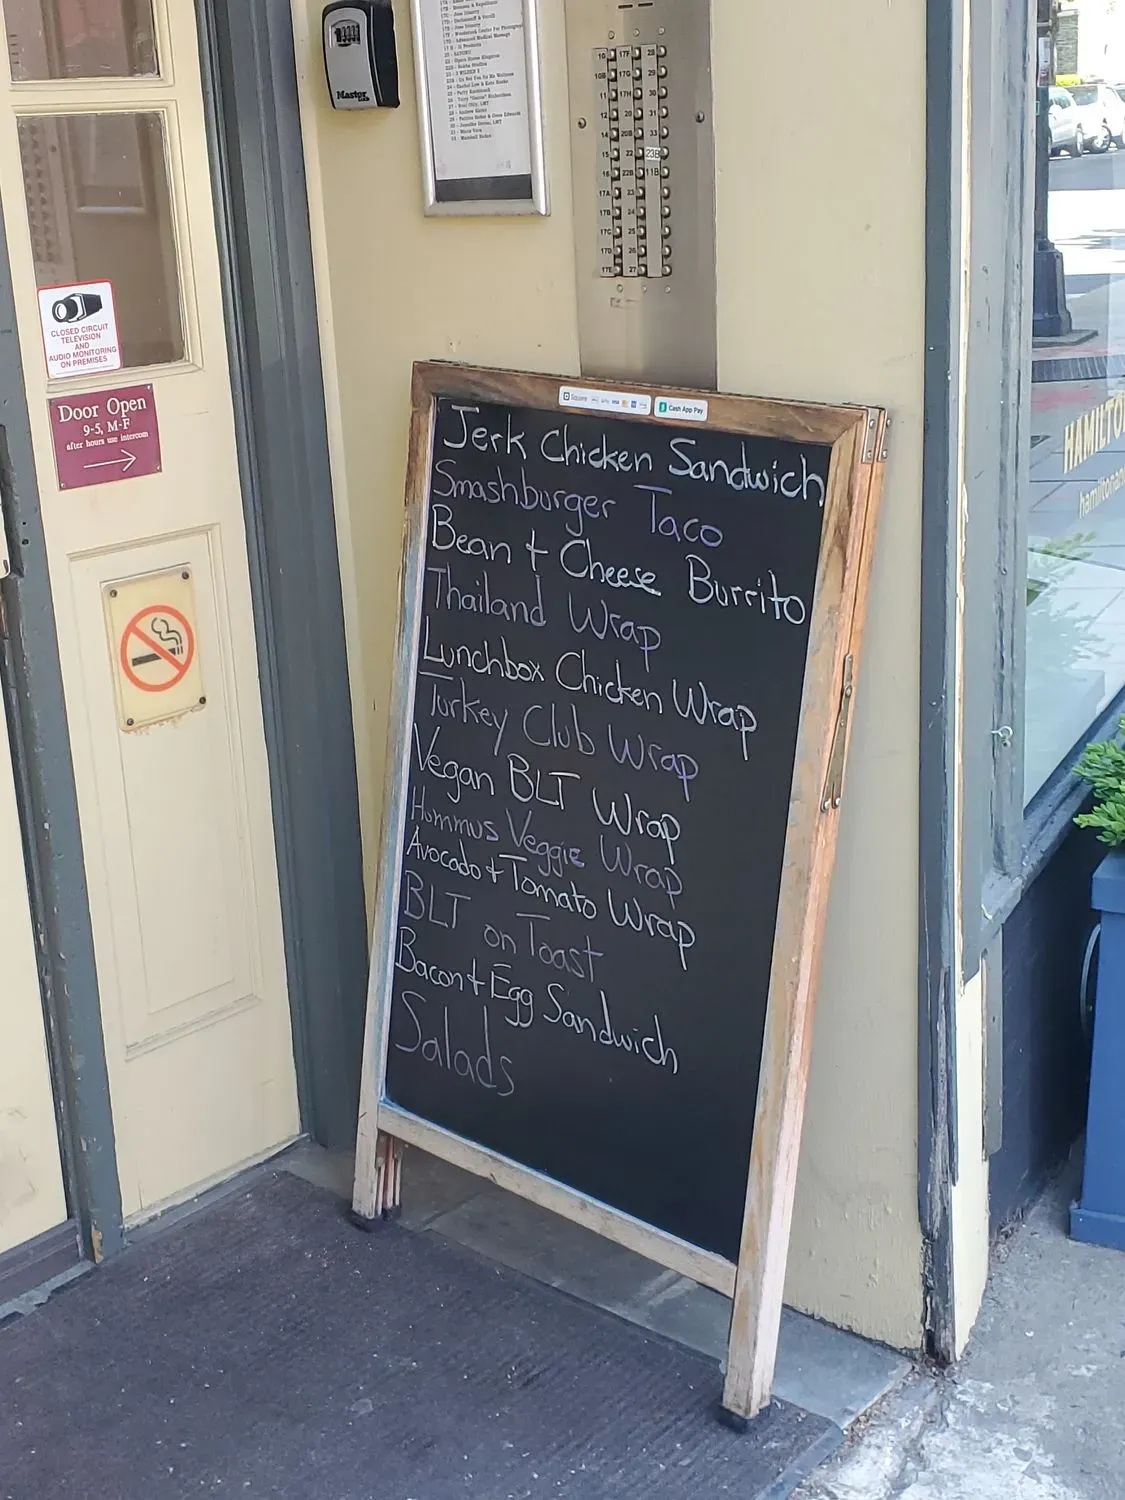 Master
CLOSED CIRCUIT
TELEVISION
AND
AUDIO MONITORING
ON PREMISES
Door Open
9-5, M-F
after hours use intercom
10 17F 28
10B 17G 29
11 17H 30
12 20 31
14 20B 33
15 22 23B
16 22B 11B
17A 23
17B 24
17C 25
17D 26
17E 27
Square
Cash App Pay
Jerk Chicken Sandwich
Smashburger Taco
Bean + Cheese Burrito
Thailand Wrap
Lunchbox Chicken Wrap
Turkey Club Wrap
Vegan BLT Wrap
Hummus Veggie Wrap
Avocado + Tomato Wrap
BLT on Toast
Bacon + Egg Sandwich
Salads
HAMILTO
hamiltonan